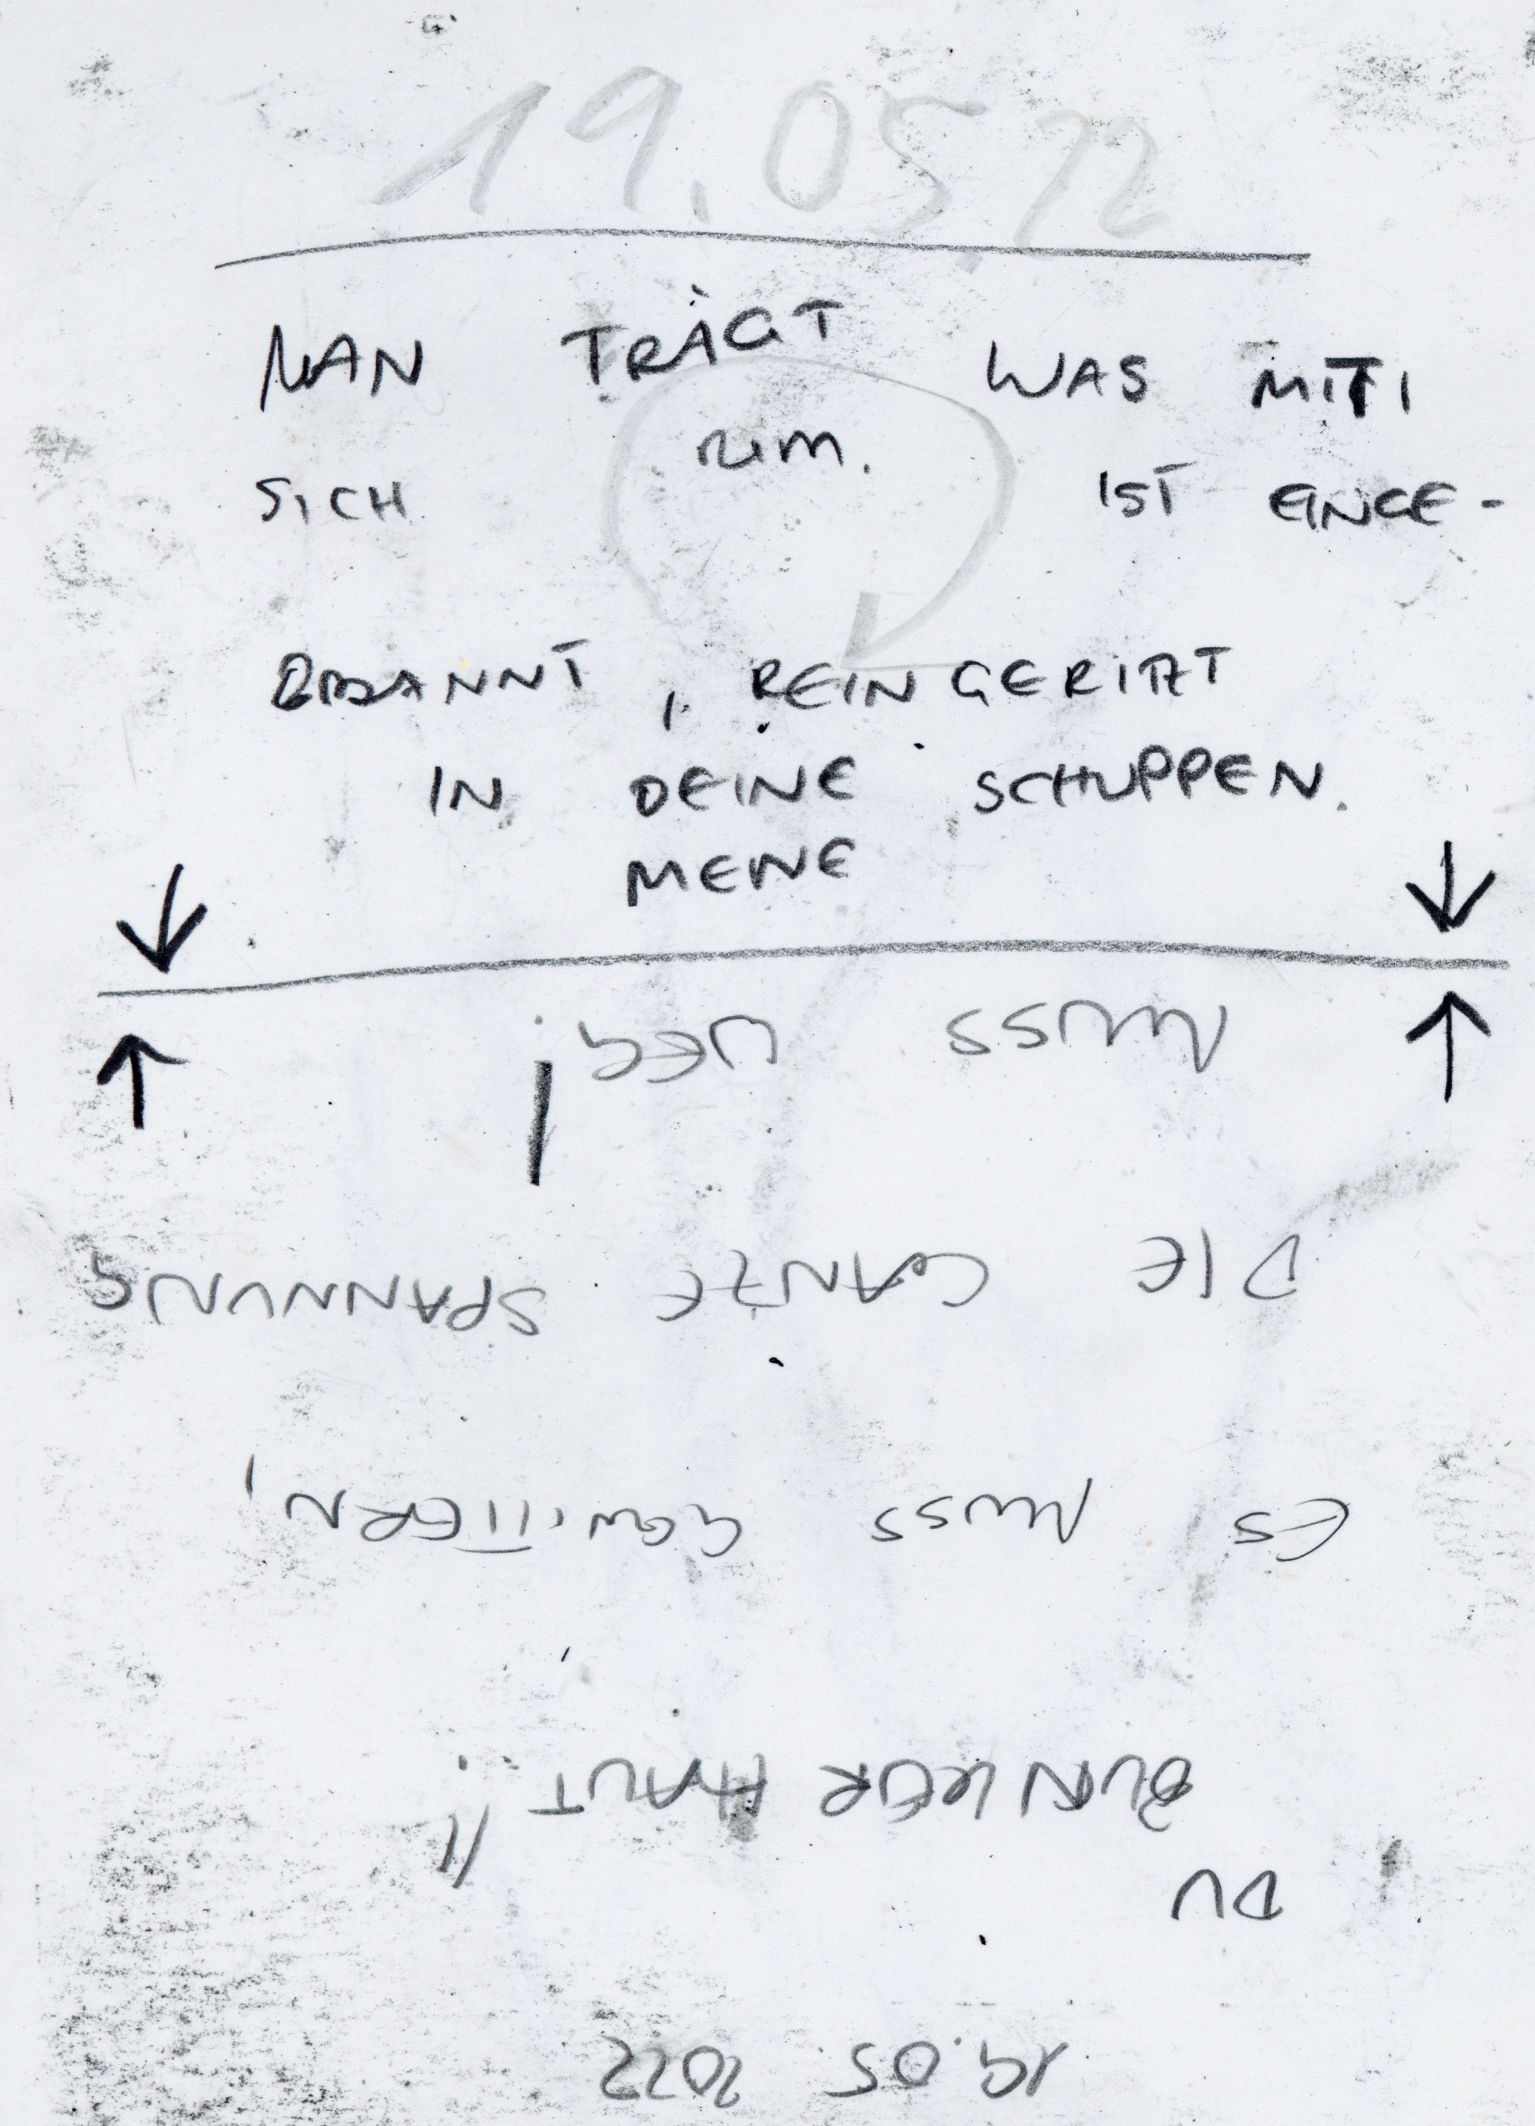 19.05.22
MAN TRÄGT WAS MIT
SICH RUM. IST EINGE-
BRANNT, REINGERITZT
IN DEINE SCHUPPEN.
MEINE
19.05 2022
DU
DUNKLER HAUT !!
ES MUSS GEWITTERN,
DIE GANZE SPANNUNG
MUSS WEG!